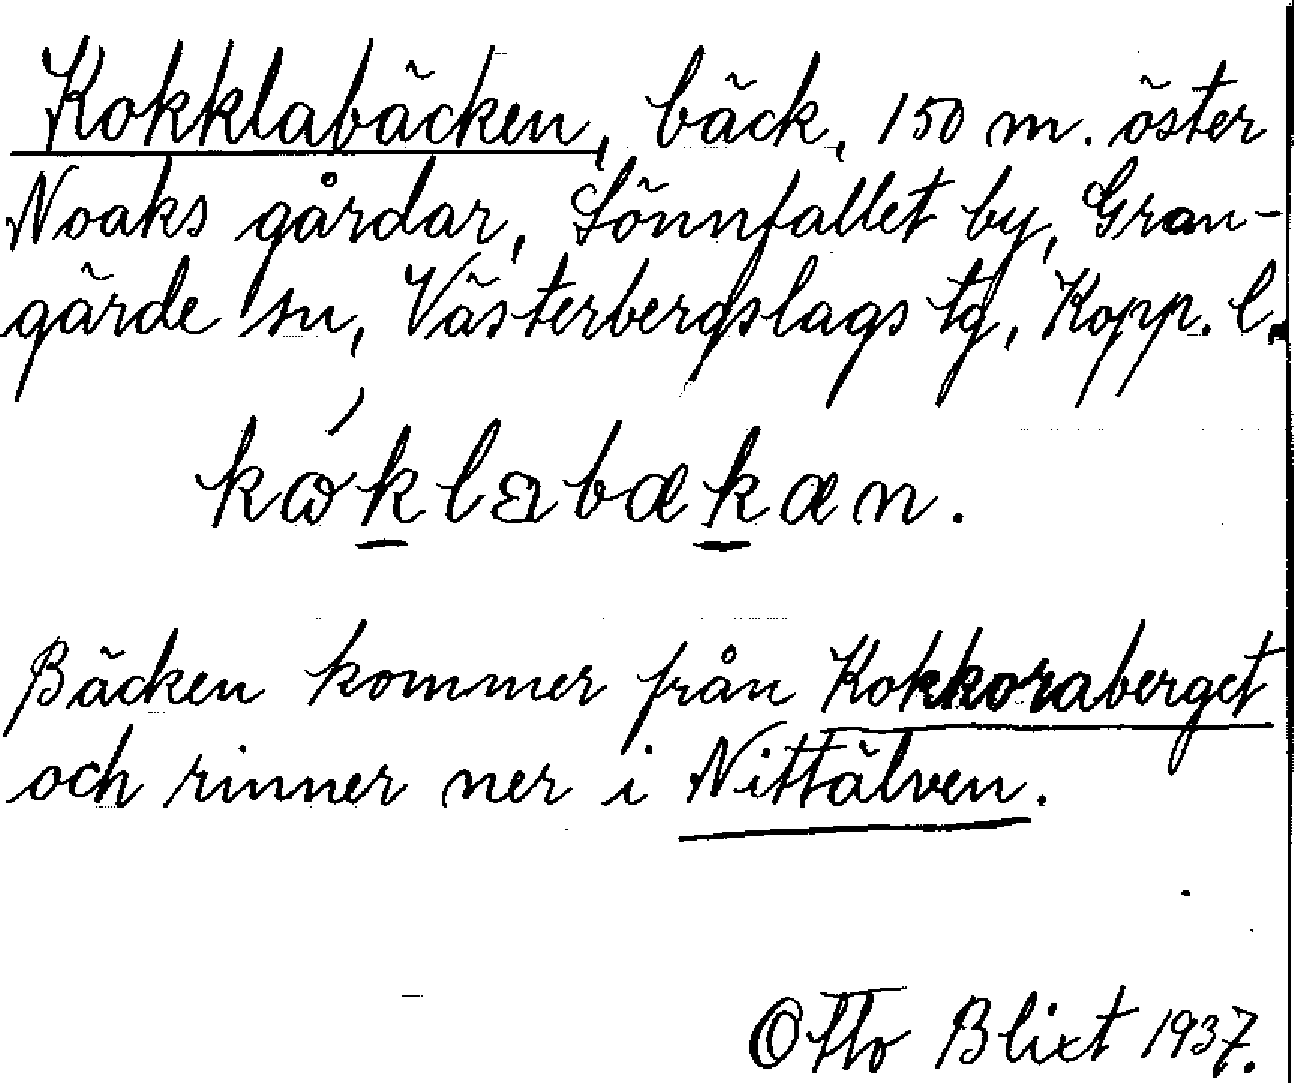 Kokklabäcken, bäck, 150 m. öster
Noaks gårdar, Lönnfallet by, Gran-
gärde sn, Västerbergslags tg, Kopp. l.
Bäcken kommer från Kokkoraberget
och rinner ner i Nittälven.
Otto Blixt 1937.